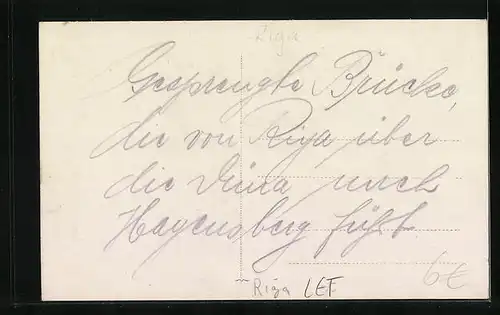 Riga
Gesprengte Brücke,
die von Riga über
die Düna nach
Hagensberg führt
6€
Riga LET